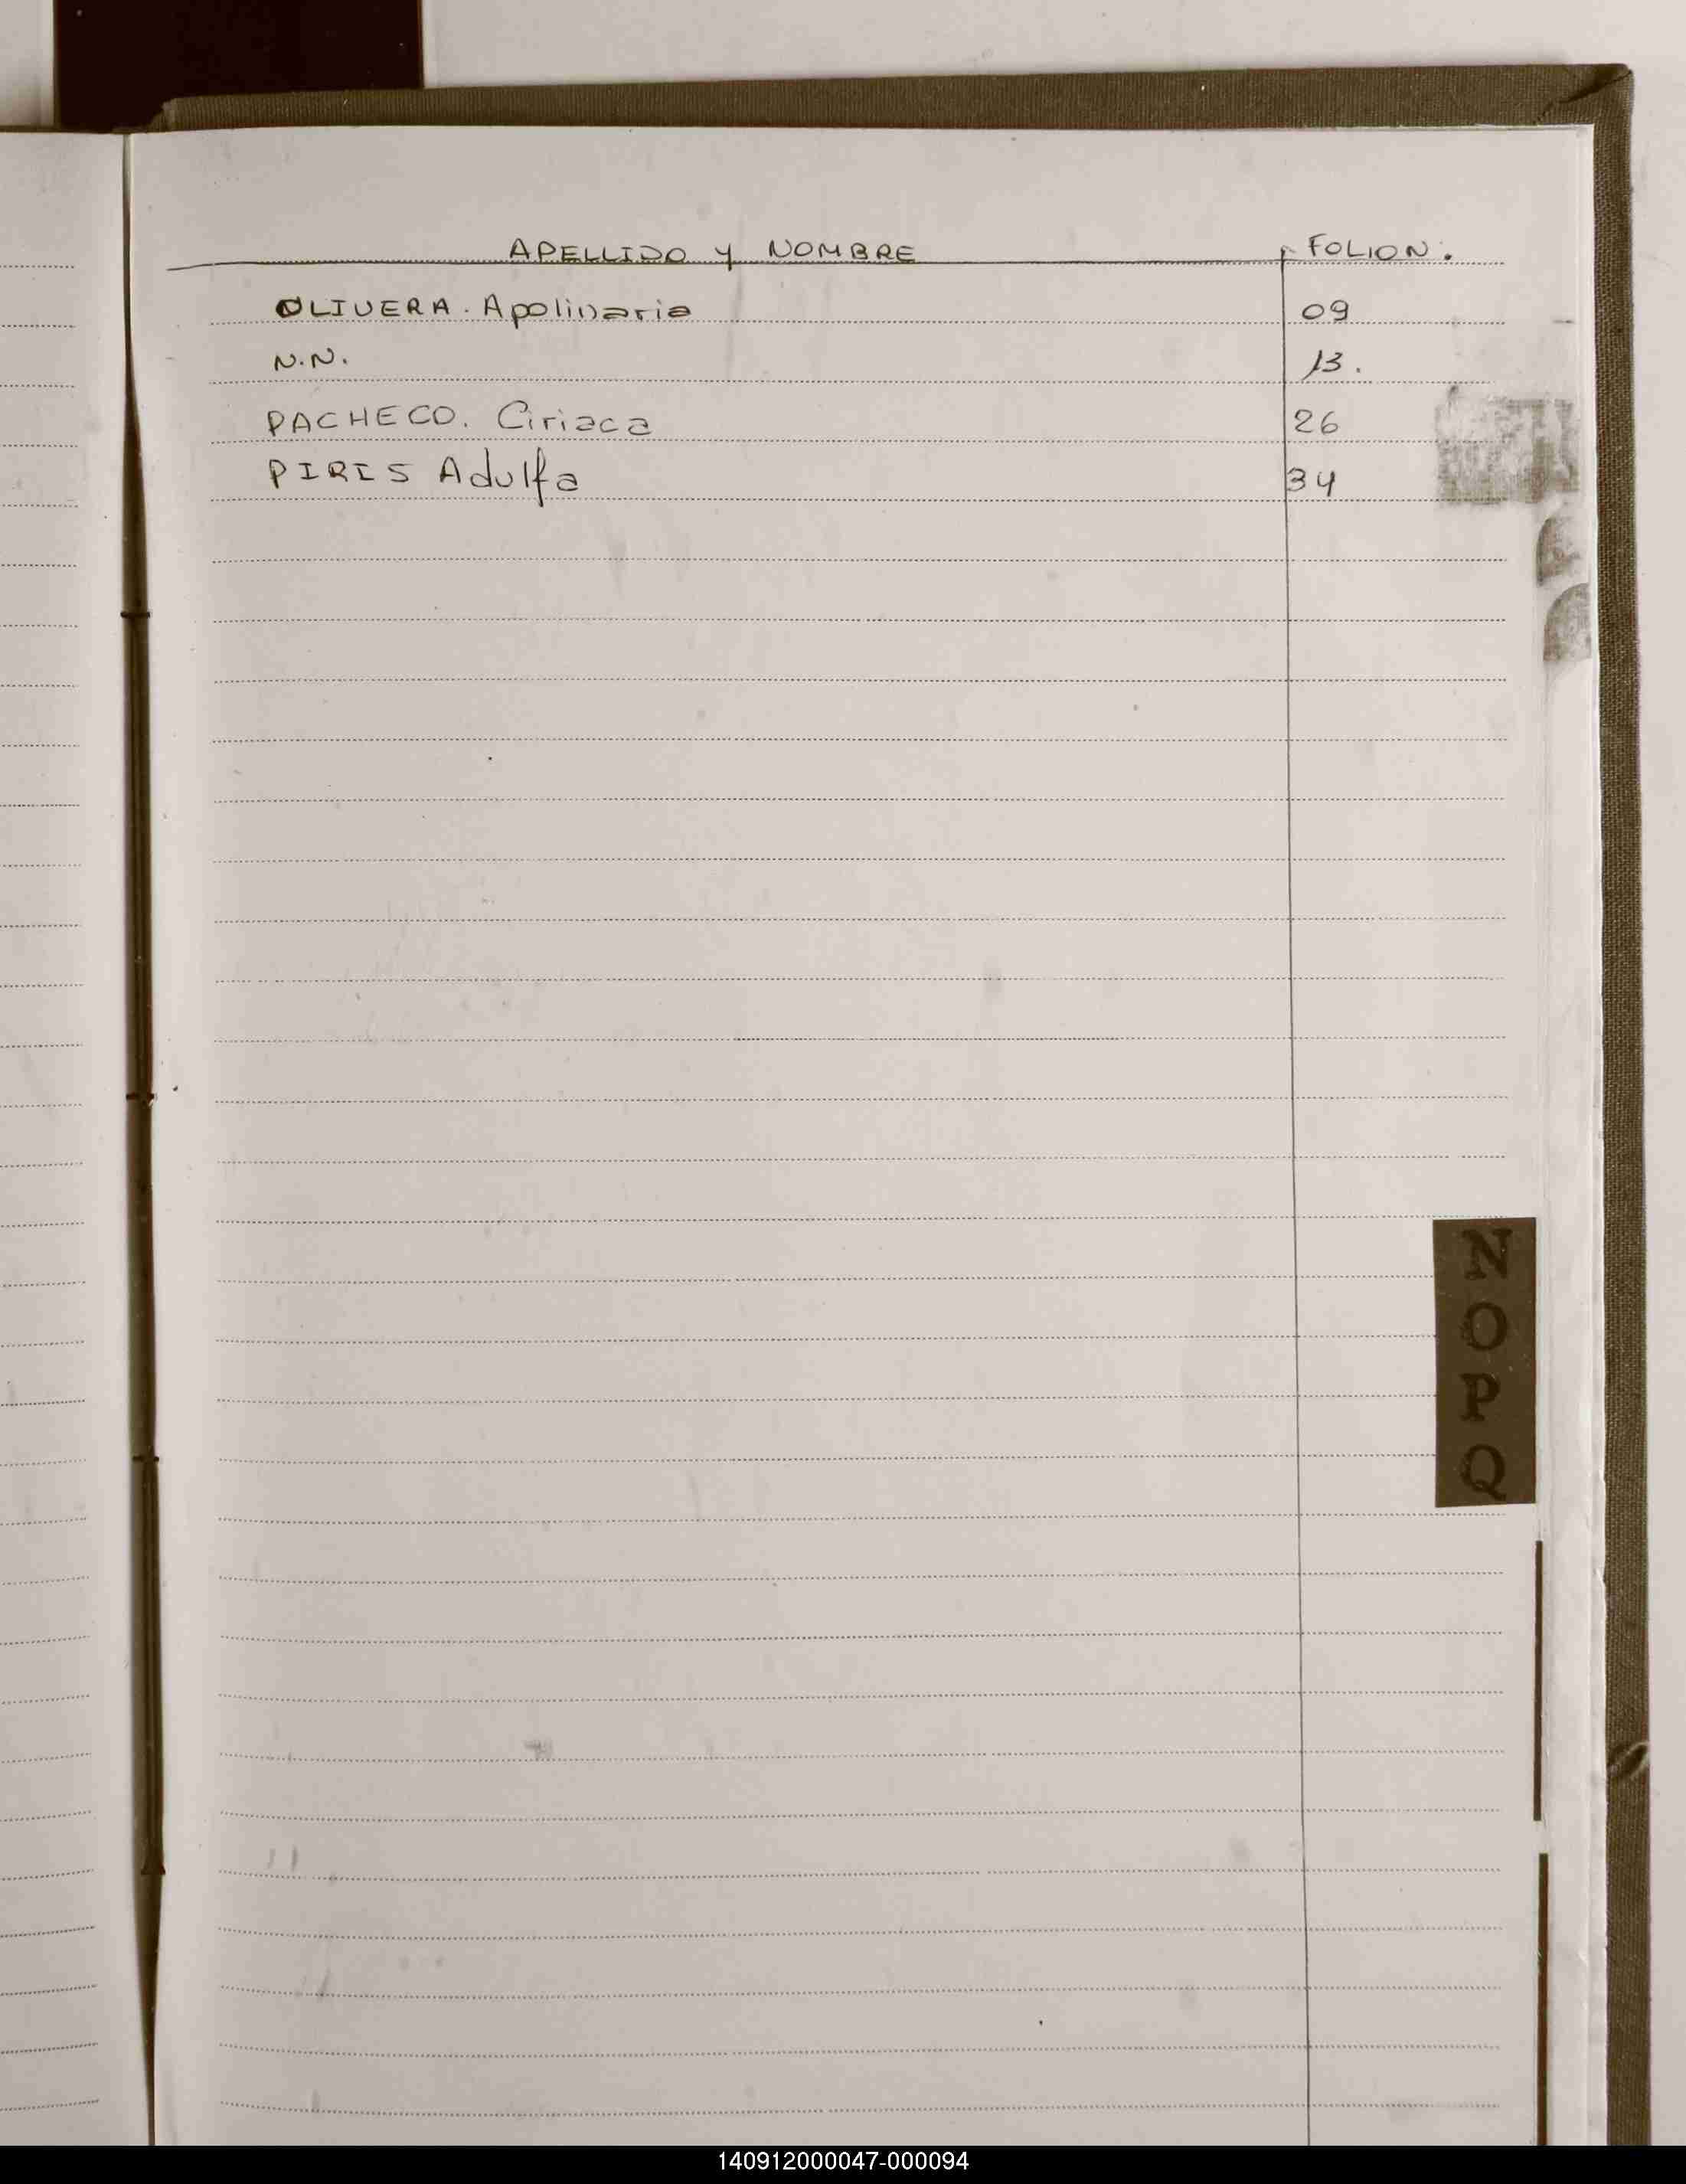 APELLIDO Y NOMBRE FOLION.
OLIVERA. Apolinaria 09
N.N. 13.
PACHECO. Ciriaca 26
PIRIS Adulfa 34
N
O
P
Q
140912000047-000094